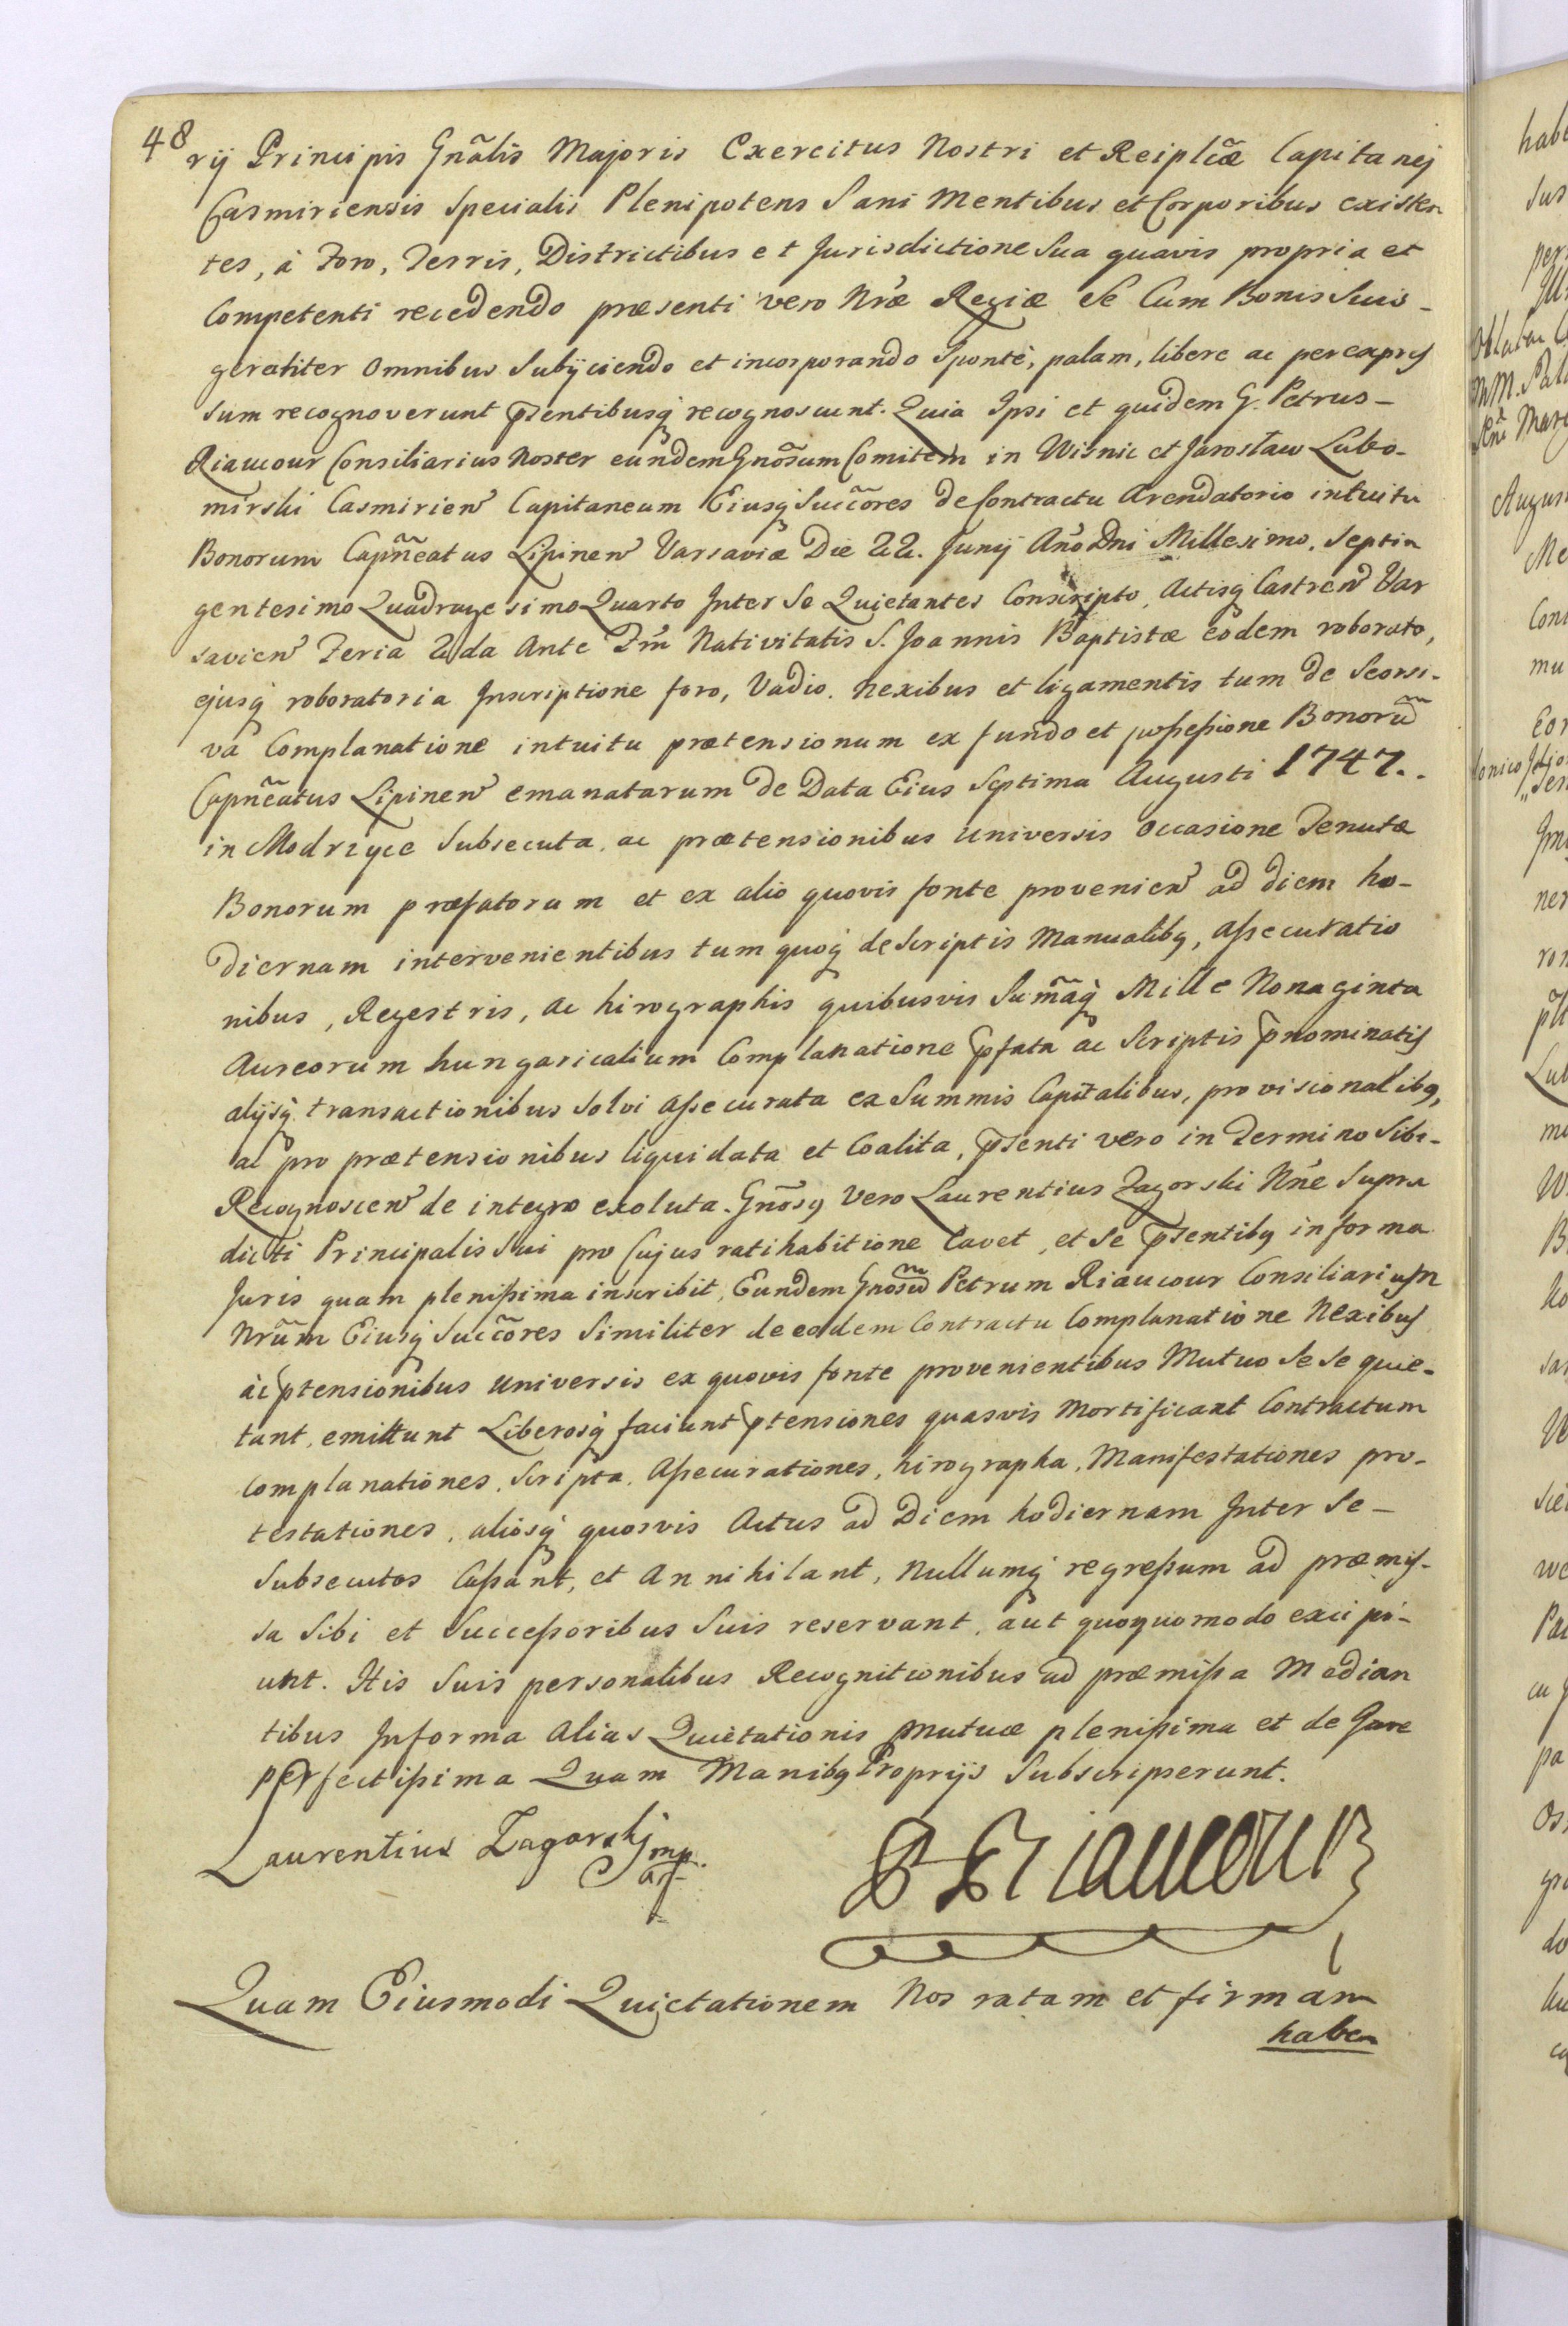 48
rij Principis Gnãlis Majoris Exercitus Nostri et Reiplicæ Capitanej
Casmiriensis Specialis Plenipotens Sani Mentibus et Corporibus existen
tes, à Foro, Terris, Districtibus et Jurisdictione Sua quavis propria et
Competenti recedendo præsenti vero Nræ Regiæ Se Cum Bonis Suis –
gñraliter Omnibus Subijciendo et incorporando Sponte, palam, libere ac per expres
sum recognoverunt p̃sentibusq; recognoscunt. Quia Ipsi et quidem G. Petrus –
Riaucour Consiliarius Noster eundem Gnõsum Comitem in Wisnic et Jarosław Lubo-
mirski Casmirien Capitaneum Eiusq; Succõres de Contractu Arendatorio intuitu
Bonorum Capñeatus Lipinen Varsaviæ Die 22. Junij Año Dni Millesimo. Septin
gentesimo Quadragesimo Quarto Inter Se Quietantes Conscripto, Actisq; Castren Var
savien Feria 2da Ante Fm̃ Nativitatis S. Joannis Baptistæ eodem roborato,
ejusq; roboratoria Inscriptione foro, Vadio, nexibus et ligamentis tum de Seorsi-
va Complanatione intuitu prætensionum ex fundo et possessione Bonorũ
Capñeatus Lipinen emanatarum de Data Eius Septima Augusti 1747.
in Modrzyce Subsecuta, ac prætensionibus universis occasione Tenutæ
Bonorum præfatorum et ex alio quovis fonte provenien ad diem ho-
diernam intervenientibus tum quoq; de Scriptis Manualibq, Assecuratio
nibus, Regestris, ac hirographis quibusvis Sum̃aq; Mille Nonaginta
Aureorum hungaricalium Complanatione p̃fata ac Scriptis p̃nominatis
alijsq; transactionibus Solvi assecurata ex Summis Capitalibus, provisionalibq,
ac pro prætensionibus liquidata et Coalita, p̃senti vero in Termino Sibi-
Recognoscen de integro exoluta. Gnõsq Vero Laurentius Zagorski Nñe Supra
dicti Principalis Sui pro Cujus ratihabitione Cavet, et Se p̃sentibq in forma
Juris quam plenissima inscribit, Eundem Gnõsũ Petrum Riaucour Consiliarium
Nrũm Eiusq; Succõres Similiter de eodem Contractu Complanatione Nexibus
ac p̃tensionibus universis ex quovis fonte provenientibus Mutuo Se Se quie-
tant, emittunt Liberosq; faciunt p̃tensiones quasvis Mortificant Contractum
Complanationes, Scripta, Assecurationes, hirographa, Manifestationes pro-
testationes, aliosq; quosvis Actus ad Diem hodiernam Inter Se –
Subsecutos Cassant, et Annihilant, Nullumq; regressum ad præmis-
sa Sibi et Successoribus Suis reservant, aut quoquomodo excipi-
unt. Itis Suis personalibus Recognitionibus ad præmissa Median
tibus In forma Alias Quietationis Mutuæ plenissima et de Jure
perfectissima Quam Manibq Proprijs Subscripserunt.
Laurentius Zagorski mp.
P Riaucour
Quam Eiusmodi Quietationem Nos ratam et firmam
haben